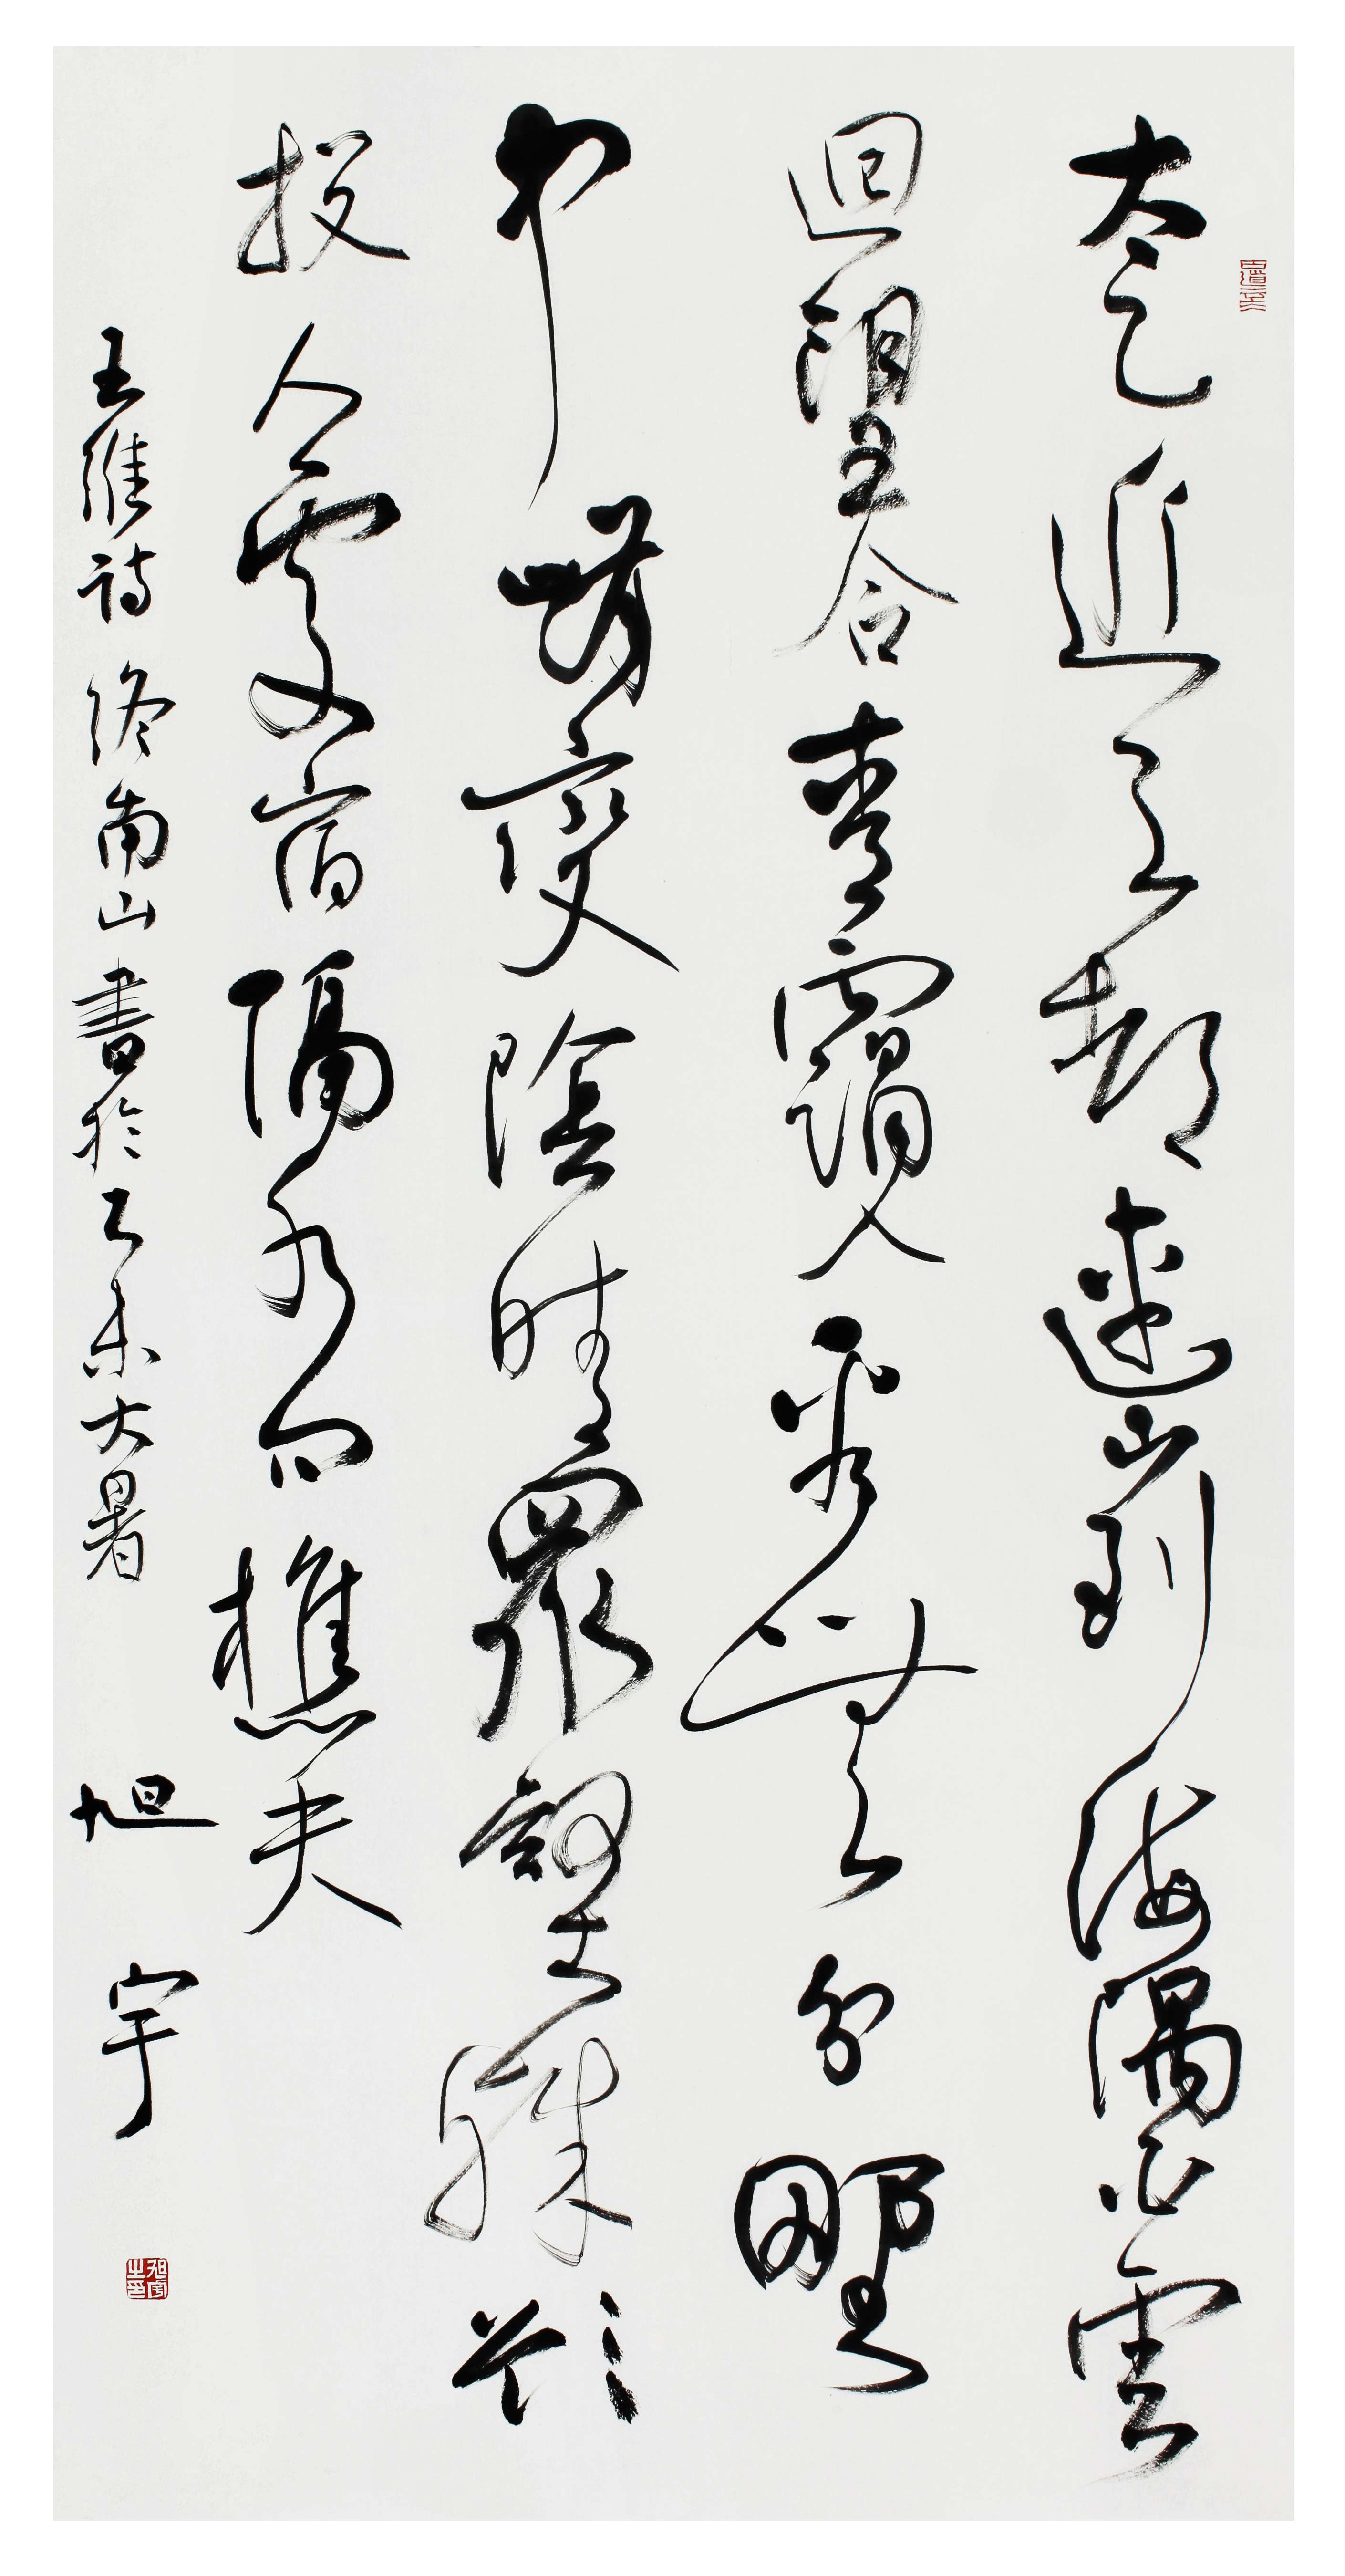 太乙近天都連山到海隅白雲
迴望合青靄入看無分野
中峰變陰晴眾壑殊欲
投人處宿隔水問樵夫
王維詩終南山書於乙未大暑 旭宇
旭宇之印